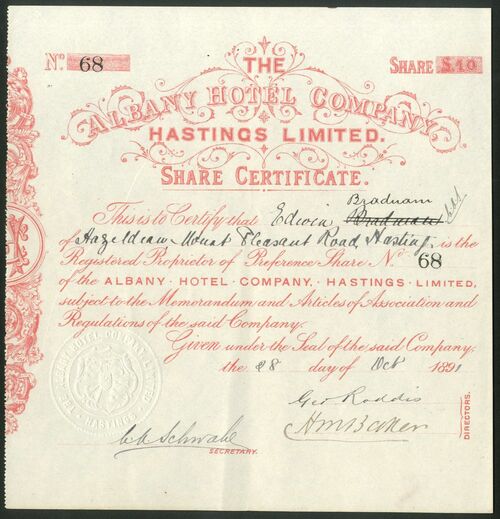 No. 68
SHARE £10
THE
ALBANY HOTEL COMPANY
HASTINGS LIMITED.
SHARE CERTIFICATE.
Bradnam
This is to Certify that Edwin Bradnam
of Hazeldean Mount Pleasant Road, Hastings, is the
Registered Proprietor of Preference Share No. 68
of the ALBANY · HOTEL · COMPANY, HASTINGS · LIMITED,
subject to the Memorandum and Articles of Association and
Regulations of the said Company.
Given under the Seal of the said Company,
the 28 day of Oct 1891
THE ALBANY HOTEL COMPANY LIMITED
HASTINGS
Geo Roddis
HM Baker
DIRECTORS.
Schwabe
SECRETARY.